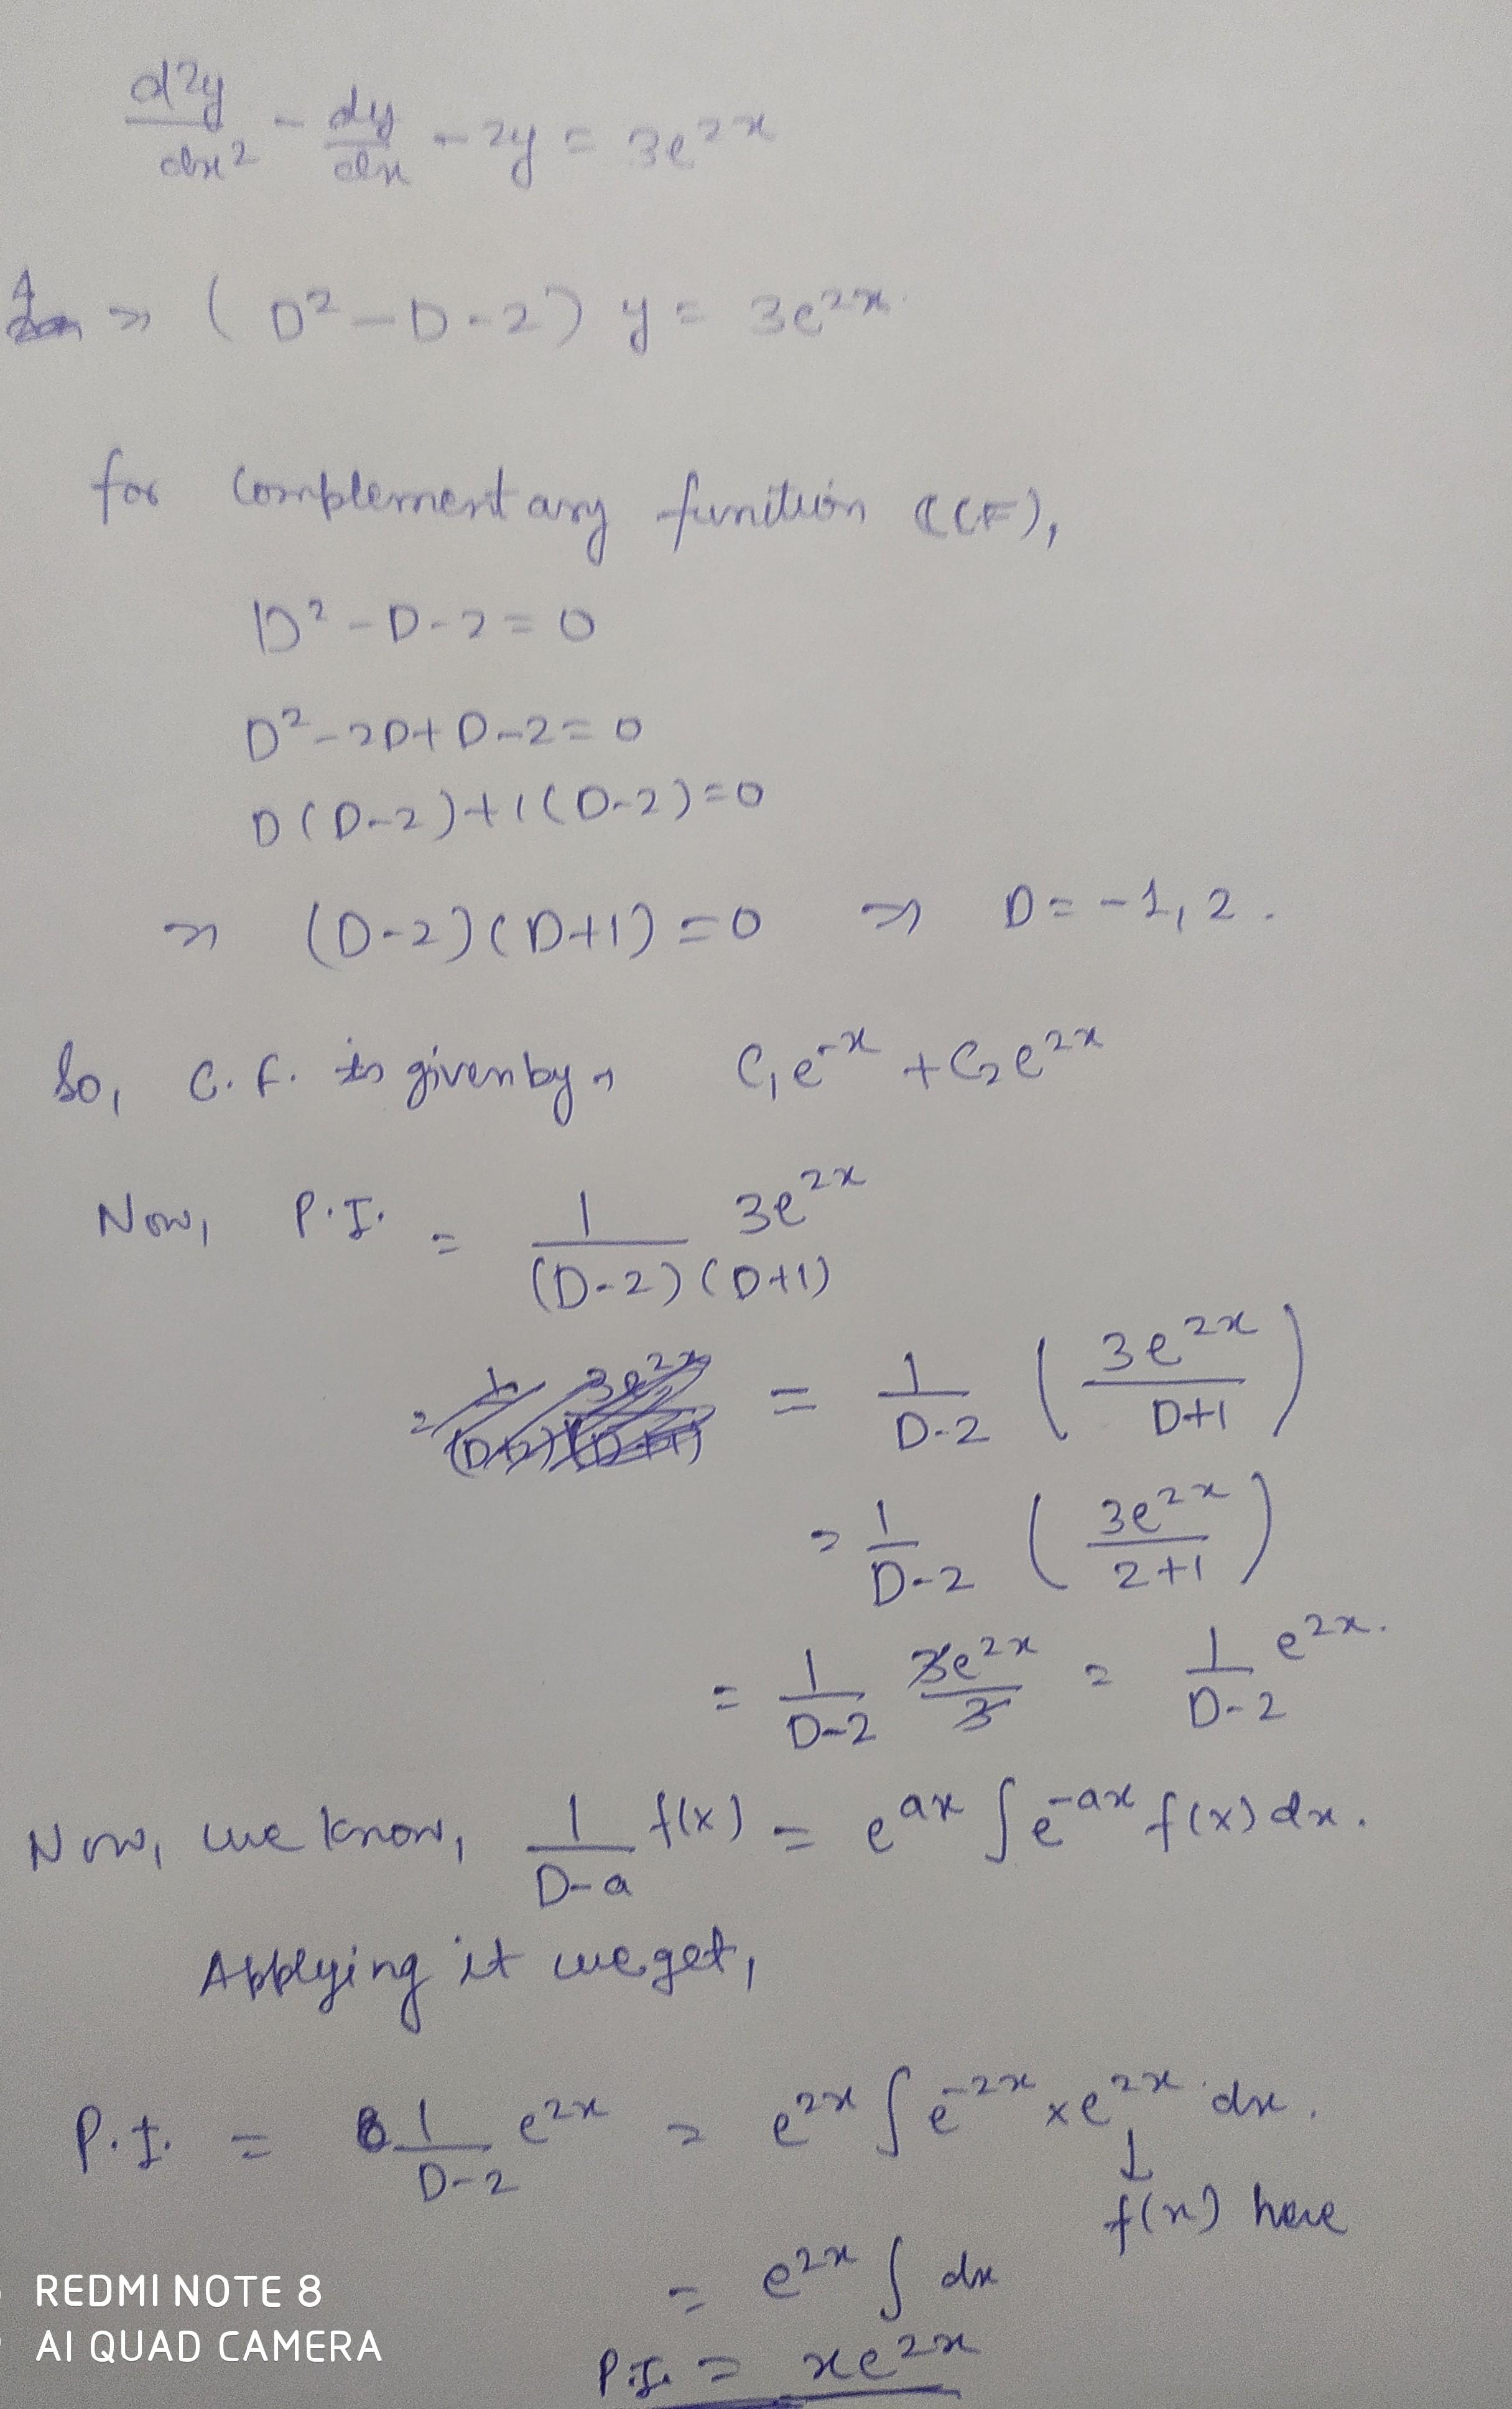 d²y/dx² - dy/dx - 2y = 3e^2x
⇒ (D² - D - 2) y = 3e^2x
for Complementary function (CF),
D² - D - 2 = 0
D² - 2D + D - 2 = 0
D(D-2) + 1(D-2) = 0
⇒ (D-2)(D+1) = 0 ⇒ D = -1, 2.
So, C.F. is given by, C₁e^-x + C₂e^2x
Now, P.I. = 1/((D-2)(D+1)) 3e^2x
= 1/(D-2) (3e^2x/(D+1))
= 1/(D-2) (3e^2x/(2+1))
= 1/(D-2) 3e^2x/3 = 1/(D-2) e^2x.
Now, we know, 1/(D-a) f(x) = e^ax ∫e^-ax f(x) dx.
Applying it we get,
P.I. = 1/(D-2) e^2x = e^2x ∫e^-2x × e^2x dx.
↓
f(x) here
= e^2x ∫ dx
P.I. = xe^2x
REDMI NOTE 8
AI QUAD CAMERA